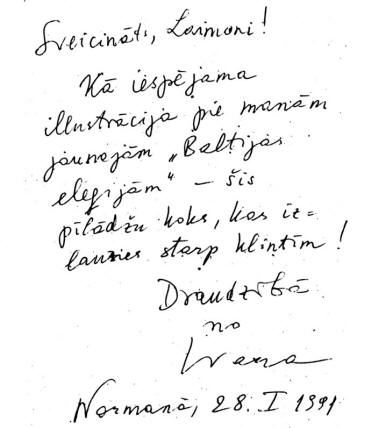 Sveicināts, Laimoni!
Kā iespējama
illustrācija pie manām
jaunajām „Baltijas
elēģijām" – šis
pīlādžu koks, kas iz=
lauzies starp klintīm!
Draudzībā
no
Ivara
Normanā, 28. I 1991